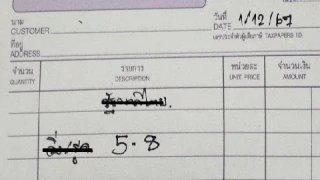 นาม
CUSTOMER
วันที่ DATE 1/12/67
ที่อยู่
ADDRESS
เลขประจำตัวผู้เสียภาษี TAXPAYERS I.D.
จำนวน รายการ หน่วยละ จำนวนเงิน
QUANTITY DESCRIPTION UNIT PRICE AMOUNT
5.8